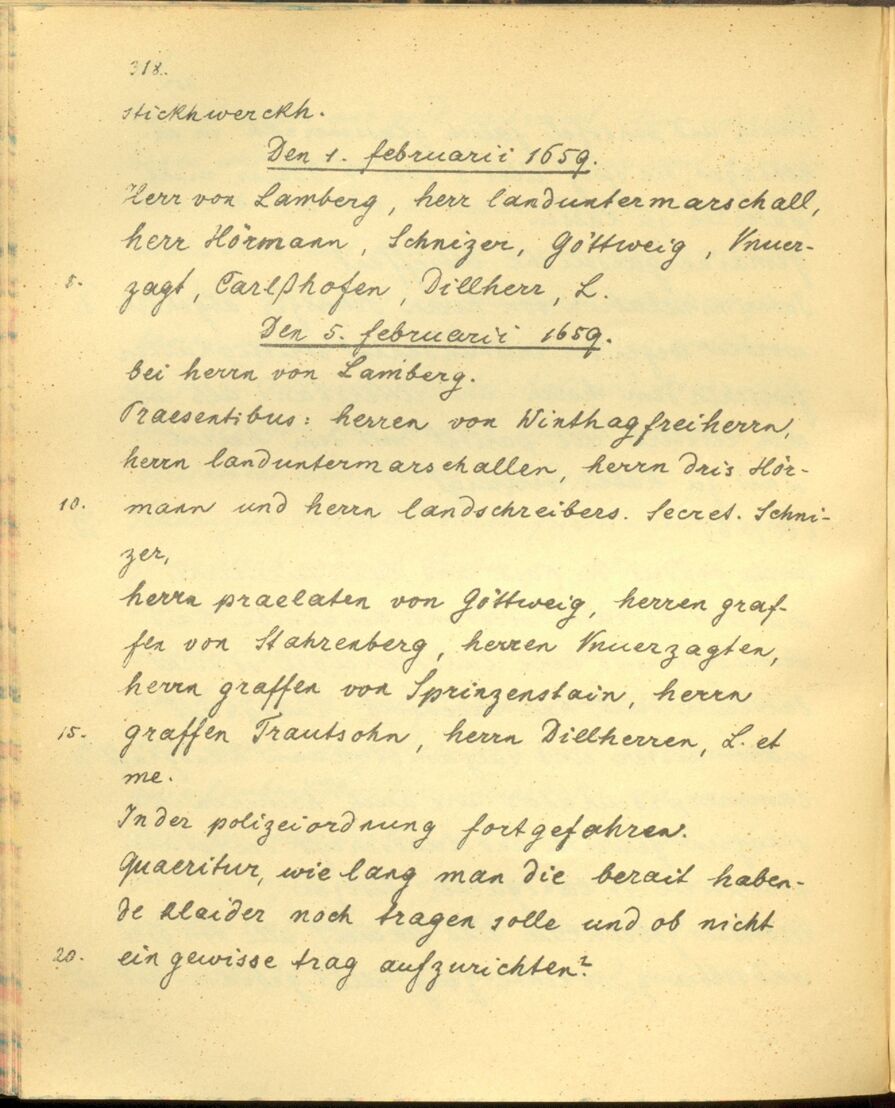 318.
stickhwerckh.
Den 1. februarii 1659.
Herr von Lamberg, herr landuntermarschall,
herr Hörmann, Schnizer, Göttweig, Vnuer-
5. zagt, Carlßhofen, Dillherr, L.
Den 5. februarii 1659.
bei herrn von Lamberg.
Praesentibus: herren von Winthag freiherrn,
herrn landuntermarschallen, herrn dris Hör-
10. mann und herrn landschreibers. Secret. Schni-
zer,
herrn praelaten von Göttweig, herren graf-
fen von Stahrenberg, herren Vnuerzagten,
herrn graffen von Sprinzenstain, herrn
15. graffen Trautsohn, herrn Dillherren, L. et
me.
In der polizeiordnung fortgefahren.
Quaeritur, wie lang man die berait haben-
de klaider noch tragen solle und ob nicht
20. ein gewisse trag aufzurichten?